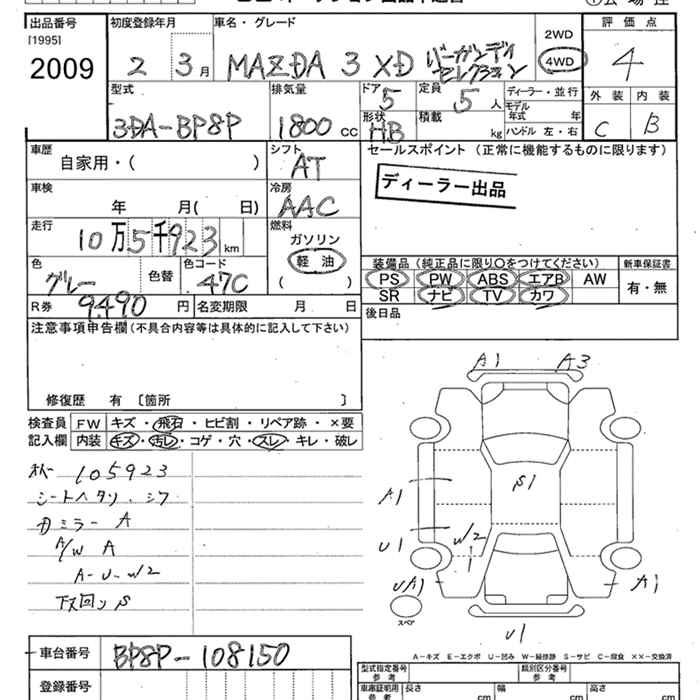 出品番号
[1995]
2009
初度登録年月
2 3月
車名・グレード
MAZDA 3 XD バーガンディ
セレクション
2WD
4WD
評価点
4
型式
3DA-BP8P
排気量
1800 cc
ドア
5
形状
HB
定員
5 人
積載
kg
ディーラー・並行
モデル
年式 年
ハンドル 左・右
外装
C
内装
B
車歴
自家用・( )
シフト
AT
セールスポイント (正常に機能するものに限ります)
ディーラー出品
車検
年 月( 日)
冷房
AAC
走行
10万5千923 km
燃料
ガソリン
軽油
( )
色
グレー
色替
色コード
47C
R券
9490 円
名変期限 月 日
装備品 (純正品に限り○をつけてください)
PS PW ABS エアB AW
SR ナビ TV カワ
新車保証書
有・無
後日品
注意事項申告欄 (不具合内容等は具体的に記入して下さい)
修復歴 有 〔箇所 〕
検査員
記入欄
FW キズ・飛石・ヒビ割・リペア跡・×要
内装 キズ・汚レ・コゲ・穴・スレ・キレ・破レ
105923
シートヘタリ、シワ
ミラー A
A/W A
A-U-W2
下回り S
A1
A3
A1
S1
U1
W2
1
UA1
A1
U1
スペア
A-キズ E-エクボ U-凹み W-補修跡 S-サビ C-腐食 XX-交換済
車台番号
BP8P-108150
登録番号
型式指定番号
参考
類別区分番号
参考
車庫証明用
参考
長さ cm
幅 cm
高さ cm